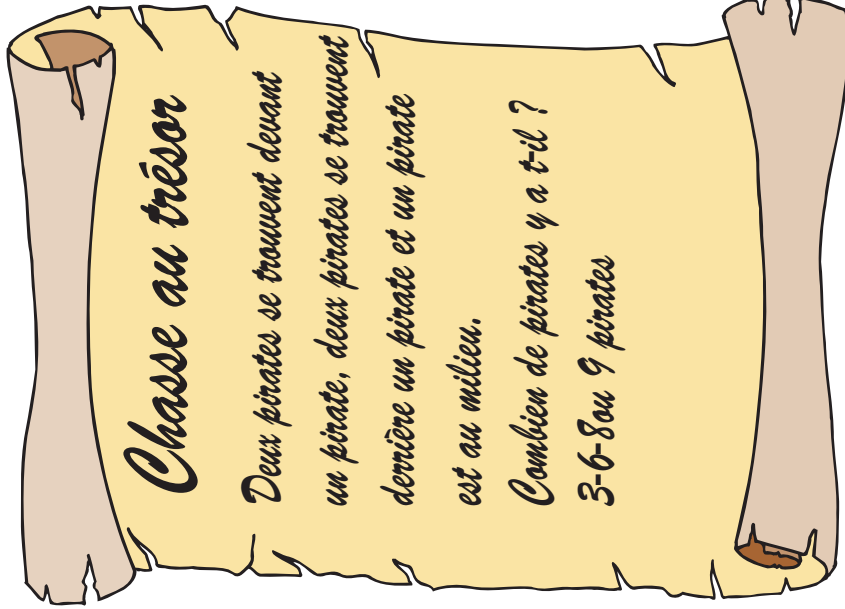 Chasse au trésor
Deux pirates se trouvent devant
un pirate, deux pirates se trouvent
derrière un pirate et un pirate
est au milieu.
Combien de pirates y a t-il ?
3-6-8ou 9 pirates